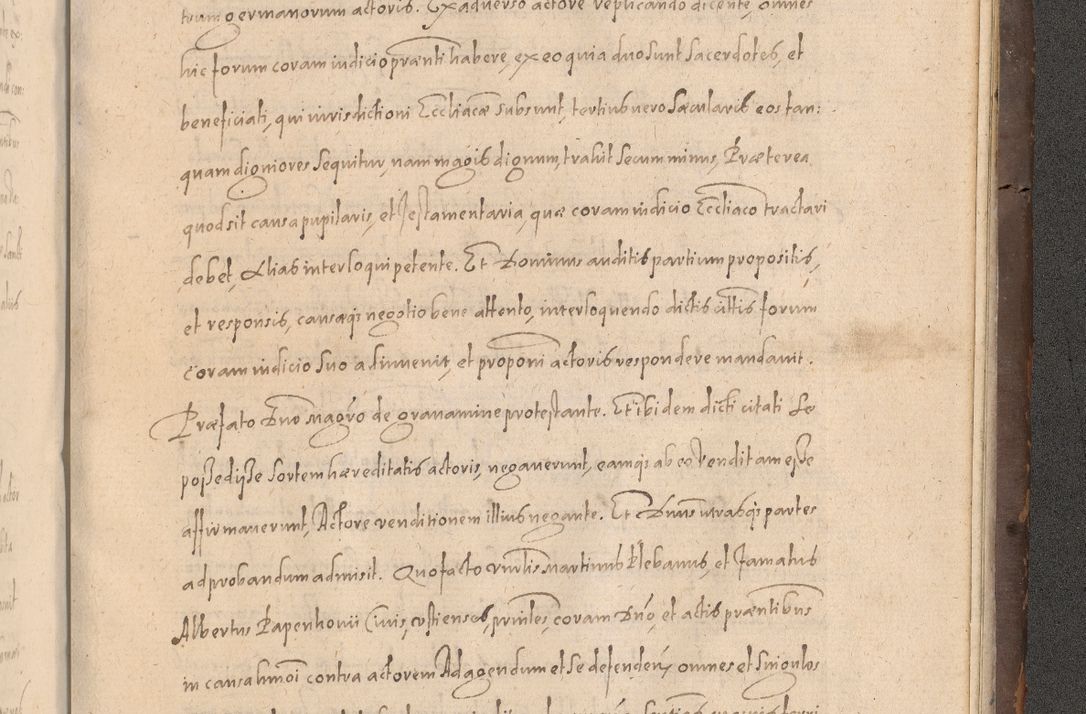 trum germanorum actoris. Ex adverso actore replicando dicente, omnes
hic forum coram iudicio prænti habere, ex eo quia duo sunt sacerdotes, et
beneficiati, qui iurisdictioni Ecclīacæ subsunt, tertius vero sæcularis eos tan:
quam digniores sequitur, nam magis dignum, trahit secum minus, Præterea
quod sit causa pupilaris, et Testamentaria, quæ coram iudicio Ecclīaco tractari
debet, Alias interloqui petente. Et Dominus auditis partium propositis,
et responsis, causæq; negotio bene attento, interloquendo dictis cittis forum
coram iudicio suo assinnenit, et proponi actoris respondere mandavit.
Præfato Dno Magro de gravamine protestante. Et ibidem dicti citati se
possedisse sortem hæreditatis actoris, negaverunt, eamq; ab eo venditam esse
affirmaverunt, Actore venditionem illius negante. Et Dnus utrasq; partes
ad probandum admisit. Quo facto Martinus Plebanus, et Famatus
Albertus Papenhovii Civis, principales, coram Dno, et actis præntibus
in causa hmoi contra actorem Ad agendum et se defenden omnes et singulos